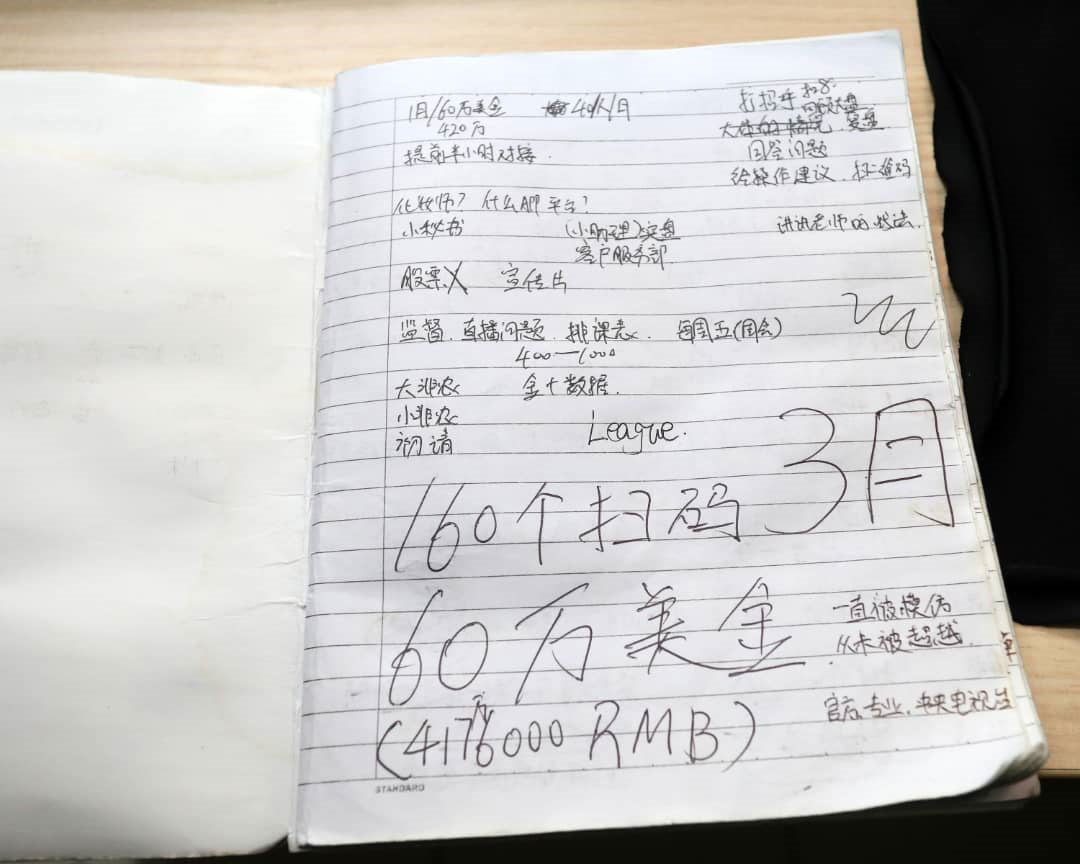 1月/60万美金 40人/日
420万
提前半小时对接.
打招呼 扫8
回顾大盘
大体的情况 复盘
回答问题
给操作建议. 扫二维码
化妆师? 什么APP平台?
小秘书 (小助理)实盘 讲讲老师的战法.
客户服务部.
股票X 宣传片
监督. 直播问题. 排课表. 每周五(周会)
400—1000
大非农 金十数据.
小非农
初请 League.
160个扫码 3月
60万美金
一直被模仿
从未被超越.
(4176000 RMB)
万
专业. 中央电视台
STANDARD